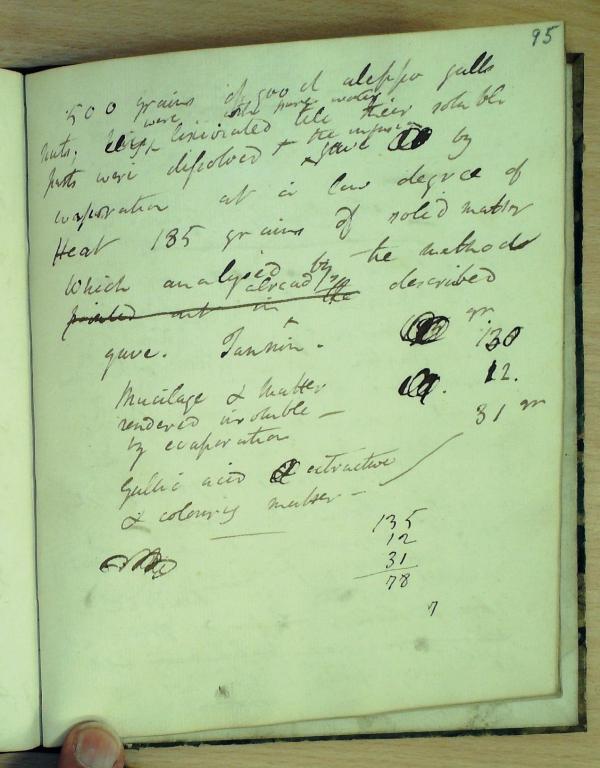 95
500 grains of good aleppo galls
were with pure water
nuts, lixiviated till their soluble
parts were dissolved & the infusion gave by
evaporation at a low degree of
Heat 185 grains of solid matter
which analysed by the methods
pointed out in the already described
gr
gave. Tannin. 130
Mucilage & Matter 12.
rendered insoluble —
by evaporation 31 gr
Gallic acid & extractive
& colouring matter —
135
12
31
78
7